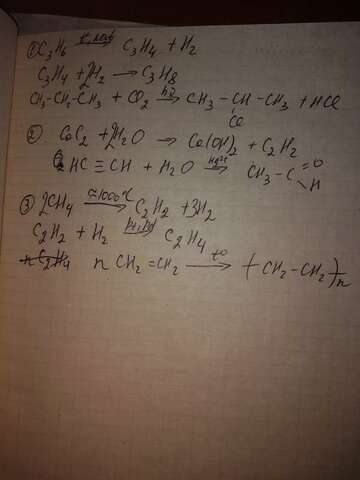 ① C₃H₆ –t°, кат→ C₃H₄ + H₂
C₃H₄ + 2H₂ → C₃H₈
CH₃-CH₂-CH₃ + Cl₂ –hν→ CH₃ – CH – CH₃ + HCl
Cl
② CaC₂ + 2H₂O → Ca(OH)₂ + C₂H₂
HC ≡ CH + H₂O –Hg²⁺→ CH₃ – C =O
H
③ 2CH₄ –≈1000°C→ C₂H₂ + 3H₂
C₂H₂ + H₂ –Pt, Pd→ C₂H₄
n C₂H₄ n CH₂ = CH₂ –t°→ (-CH₂ – CH₂-)n